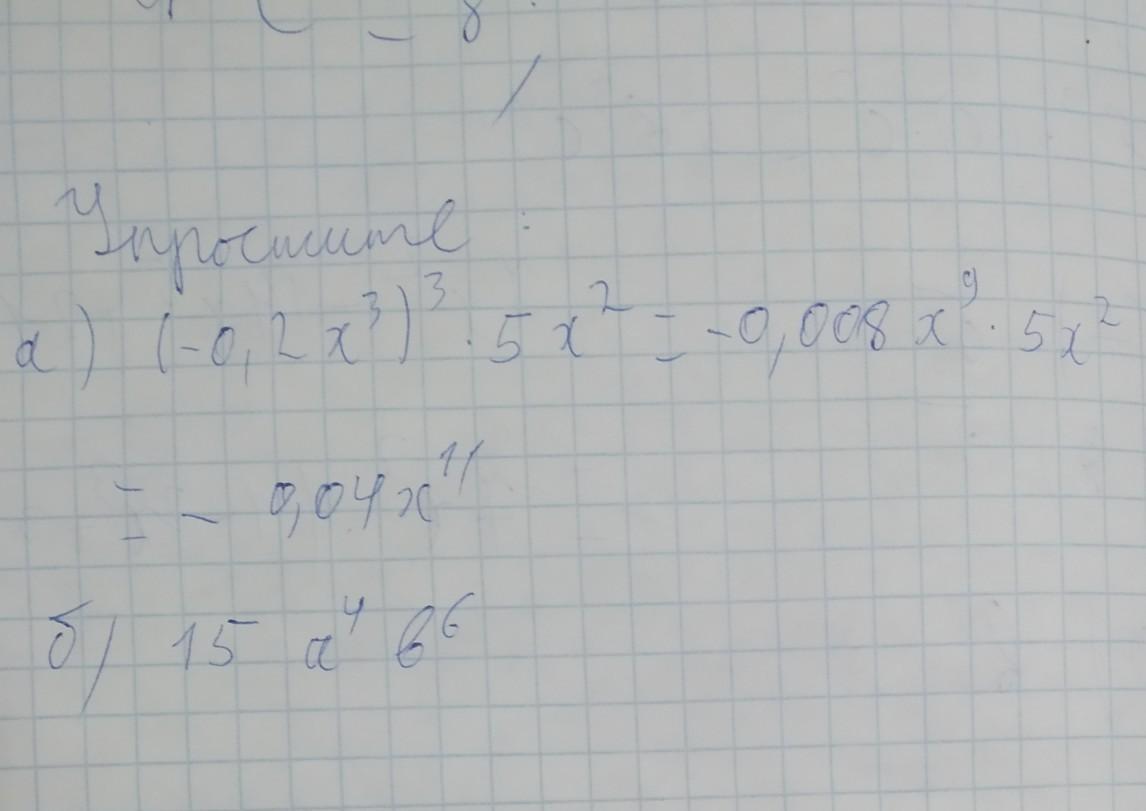 Упростите :
а) (-0,2x³)³ · 5x² = -0,008x⁹ · 5x²
= - 0,04x¹¹
б) 15 a⁴ b⁶